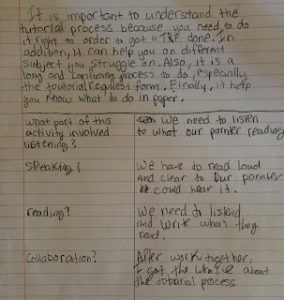 It is important to understand the
tutorial process because you need to do
it right to order to got a TRF done. In
addition, It can help you on different
subject you struggle on. Also, it is a
long and confusing process to do, especially
the toutorial request form. Finally, it help
you know what to do in paper.
what part of this
activity involved
listening?
We need to listen
to what our parnter reading
SPeaking?
We have to read loud
and clear to Our parnter
could hear it.
reading?
We need to listend
and write what they
read.
Collaboration?
After work together,
I got the whole about
the totorial process